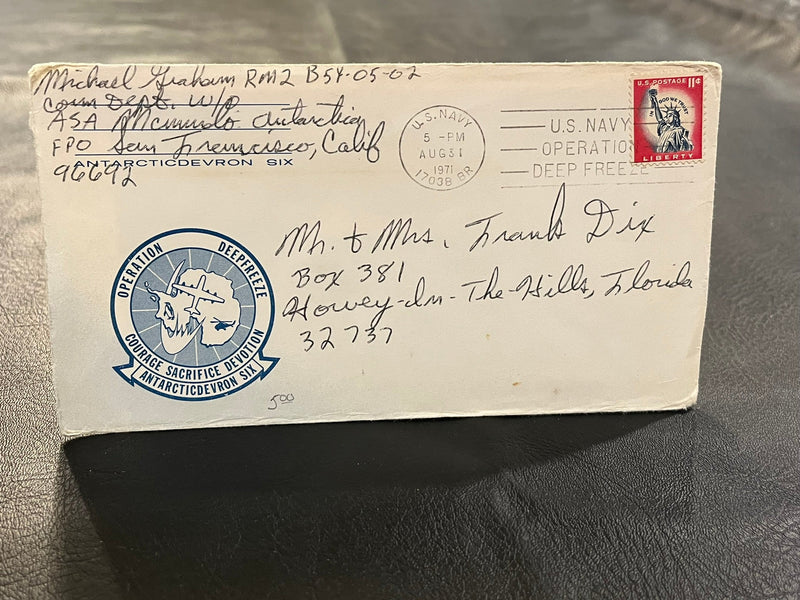 Michael Graham RM2 B54-05-02
Com Dept. W/O
ASA McMurdo Antarctica
FPO San Francisco, Calif
96692
ANTARCTICDEVRON SIX
U.S. NAVY
5 - PM
AUG 31
1971
17038 BR
U.S. NAVY
OPERATION
DEEP FREEZE
U.S. POSTAGE 11¢
IN GOD WE TRUST
LIBERTY
Mr. & Mrs. Frank Dix
Box 381
Howey-In-The-Hills, Florida
32737
OPERATION DEEPFREEZE
COURAGE SACRIFICE DEVOTION
ANTARCTICDEVRON SIX
5.00